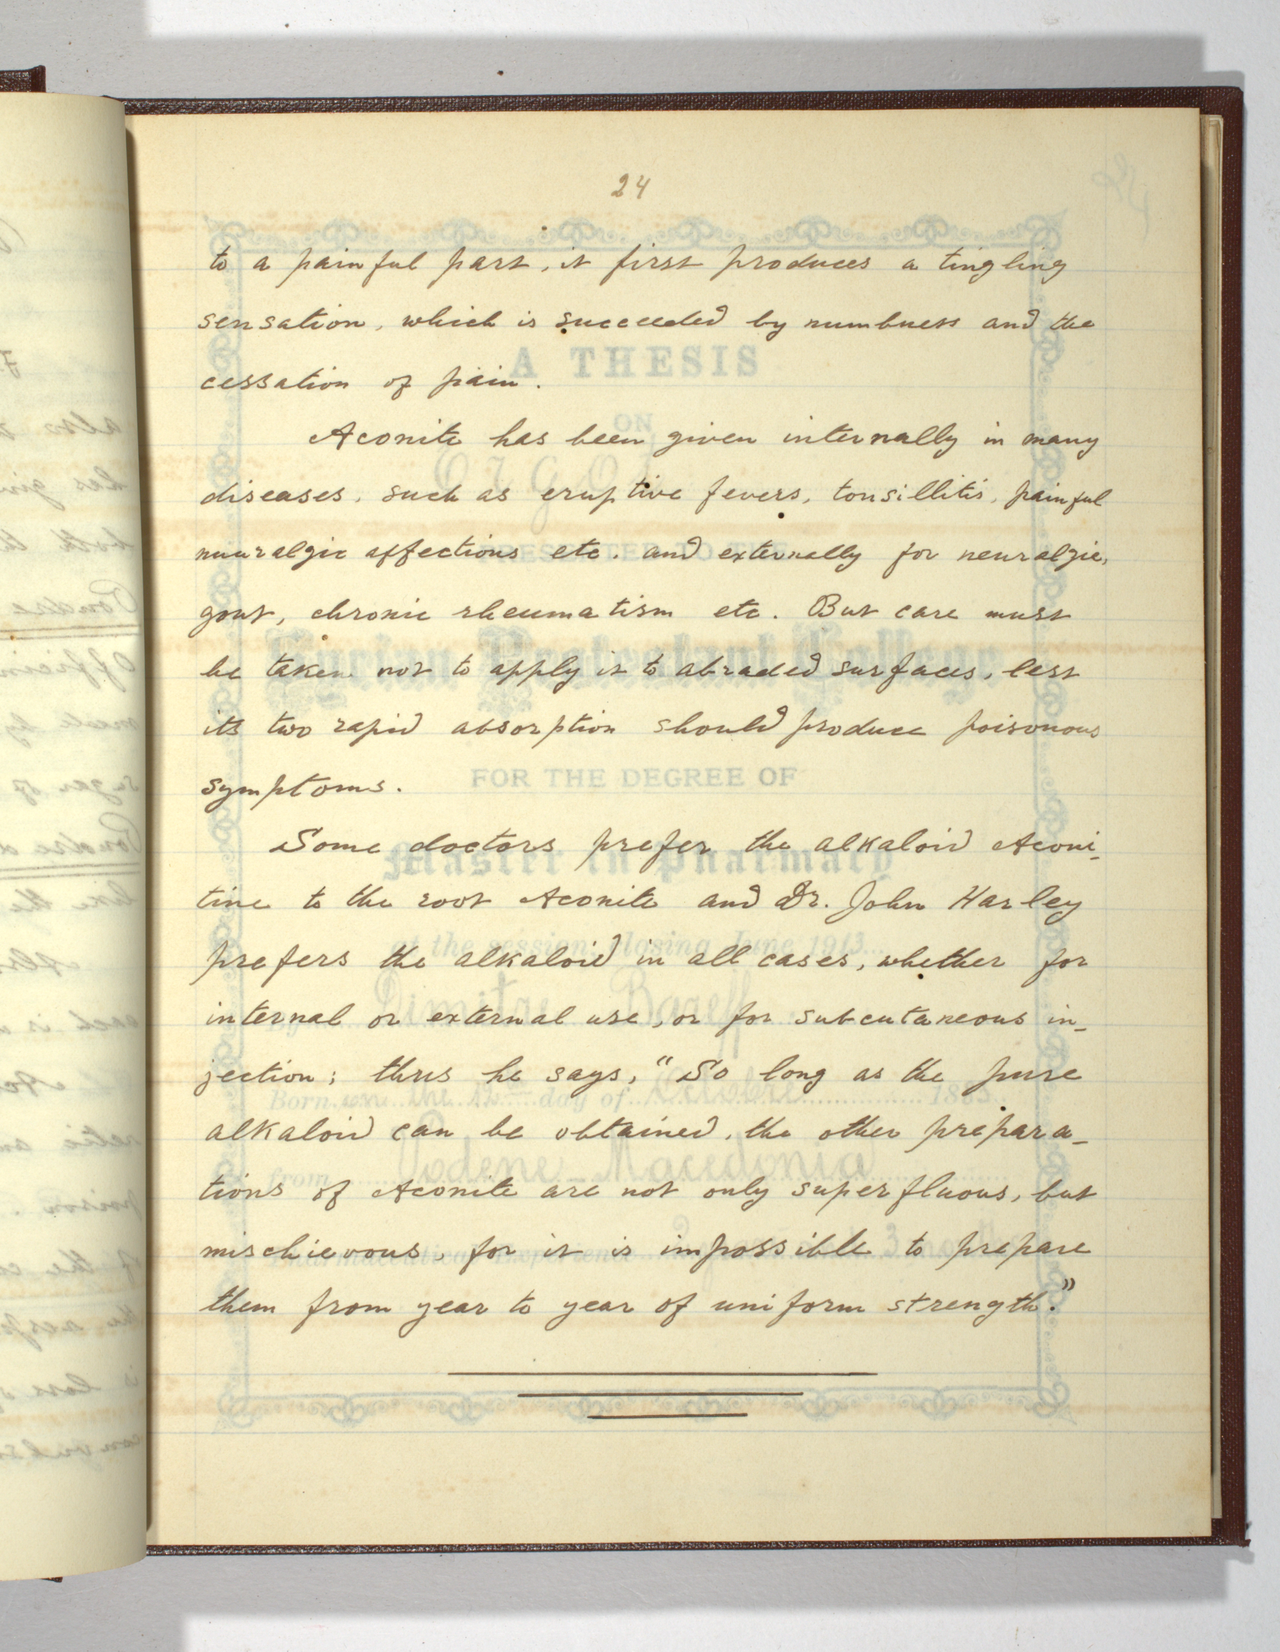 24
to a painful part, it first produces a tingling
sensation, which is succeeded by numbness and the
cessation of pain.
Aconite has been given internally in many
diseases, such as eruptive fevers, tonsillitis, painful
neuralgic affections etc. and externally for neuralgic,
gout, chronic rheumatism etc. But care must
be taken not to apply it to abraded surfaces, lest
its two rapid absorption should produce poisonous
symptoms.
Some doctors prefer the alkaloid Aconi-
tine to the root Aconite and Dr. John Harley
prefers the alkaloid in all cases, whether for
internal or external use, or for subcutaneous in-
jection; thus he says, "So long as the pure
alkaloid can be obtained, the other prepara-
tions of Aconite are not only superfluous, but
mischievous, for it is impossible to prepare
them from year to year of uniform strength."
A THESIS
ON
PRESENTED TO THE
Syrian Protestant College
FOR THE DEGREE OF
Master in Pharmacy
at the session closing June 1913
Born day of
from Vodene Macedonia